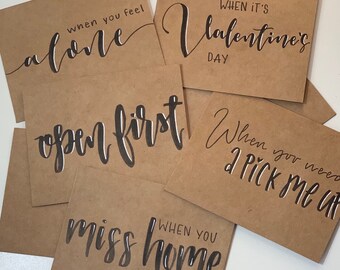 when you feel
alone
WHEN IT'S
Valentine's
DAY
open first
When you need
a PICK ME UP
WHEN YOU
miss home